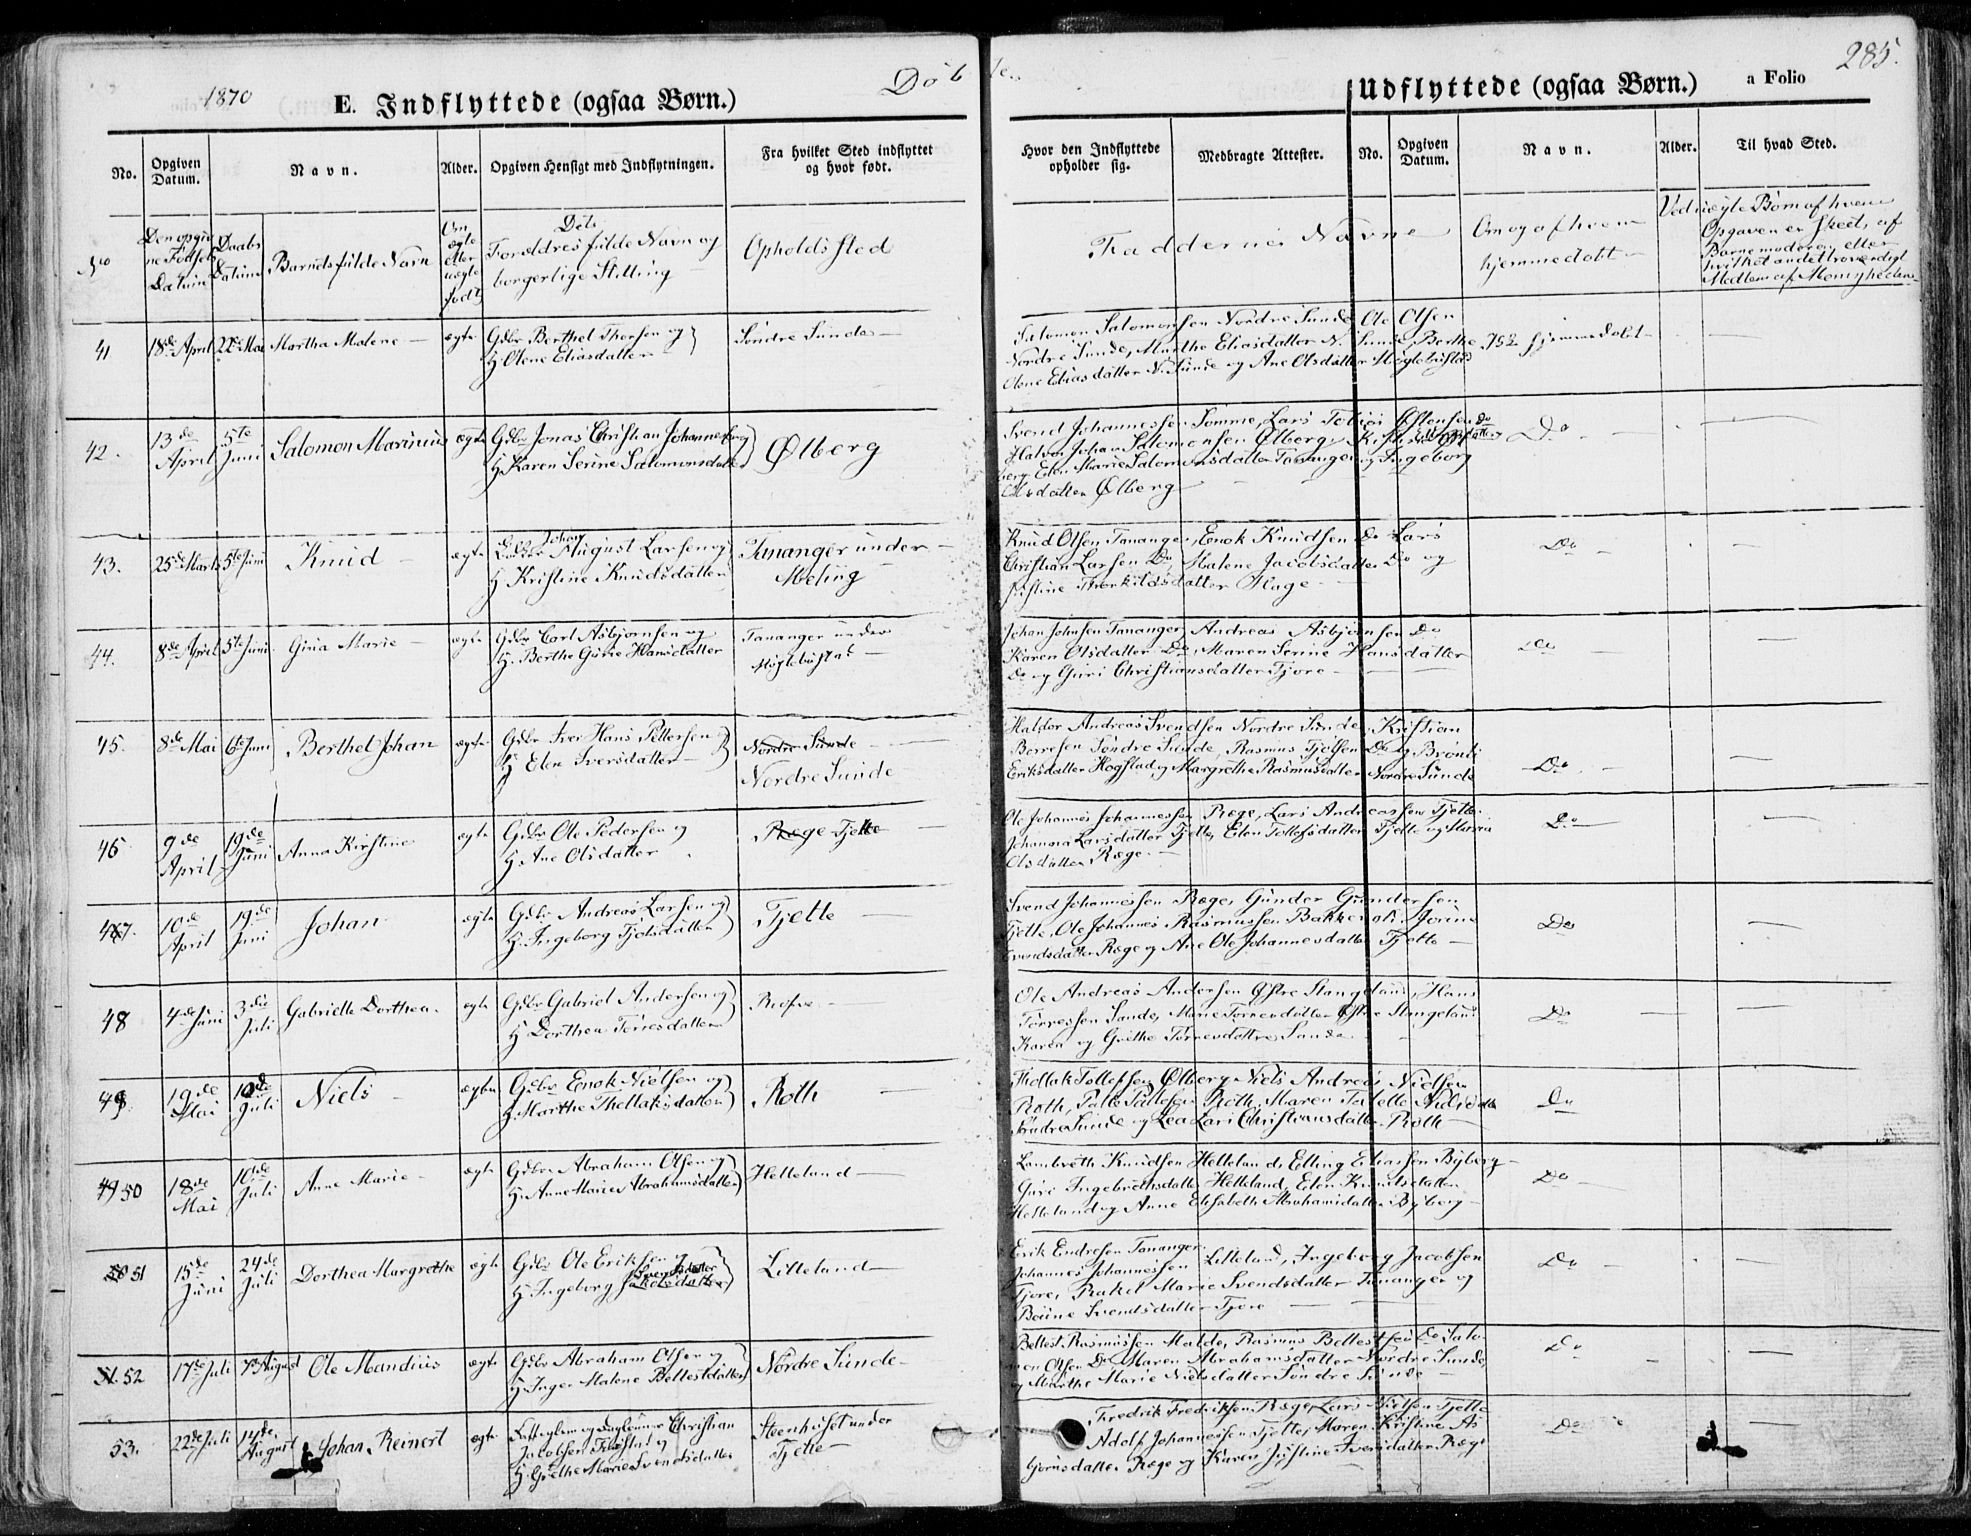 1870
E. Indflyttede (ogsaa Børn.)
Døb
te
Udflyttede (ogsaa Børn.)
a Folio
285.
No.
Opgiven Datum.
Navn.
Alder.
Opgiven Hensigt med Indflytningen.
Fra hvilket Sted indflyttet og hvor født.
Hvor den Indflyttede opholder sig.
Medbragte Attester.
No.
Opgiven Datum.
Navn.
Alder.
Til hvad Sted.
No
Den opgivne Fødsels Datum
Daabs Datum
Barnets fulde Navn
Om ægte eller uægte født
Døbtes
Forældres fulde Navn og
borgerlige Stilling
Opholdssted
Faddernes Navne
Om og af hvem
hjemmedøbt
Ved uægte Børn af hvem
Opgaven er skeet, af
Barnemoderen eller
hvilket andet troværdigt
Medlem af Menigheden
41
18de April
22de Mai
Martha Malene
ægte
Gdbr Berthel Thorsen og
H. Olene Eliasdatter
Søndre Sunde
Salomon Salomonsen Nordre Sunde, Ole Olsen
Nordre Sunde, Marthe Eliasdatter N. Sunde, Berthe
Olene Eliasdatter N. Sunde og Ane Olsdatter Meglebustad
hjemmedøbt
42.
13de April
5te Juni
Salomon Marinius
ægte
Gdbr Jonas Christian Johannesen og
H. Karen Serine Salomonsdatter
Ølberg
Svend Johannessen Sømme, Lars Tobias Østensen Do
Halvor Johan Salomonsen Ølberg,
berg, Elen Marie Salomonsdatter Tananger og Ingeborg
Olsdatter Ølberg
Do
43.
25de Marts
5te Juni
Knud
ægte
Johan
August Larsen og
H Kristine Knudsdatter
Tananger under
Meling
Knud Olsen Tananger, Enok Knudsen Do Lars
Christian Larsen Do, Malene Jacobsdatter Do og
Justine Therkildsdatter Hage
Do
44.
8de April
5te Juni
Gina Marie
ægte
Gdbr Carl Asbjørnsen og
H. Berthe Gurie Hansdatter
Tananger under
Meglebustad
Johan Johnsen Tananger, Andreas Asbjørnsen Do
Karen Olsdatter Do, Maren Serine Hansdatter
Do og Guri Christiansdatter Tjore
Do
45.
8de Mai
6te Juni
Berthel Johan
ægte
Gdbr Iver Hans Pettersen
H Elen Iversdatter
Nordre Sunde
Nordre Sunde
Haldor Andreas Svendsen Nordre Sunde, Kristian
Børresen Søndre Sunde, Rasmus Tjølsen Do og Brønli
Eriksdatter Hogstad og Margrethe Rasmusdatter Nordre Sunde
Do
46
9de April
19de Juni
Anna Kirstine
ægte
Gdbr Ole Pedersen og
H. Ane Olsdatter
Ræge Tjelte
Ole Johannes Johannessen Ræge, Lars Andreassen Tjelte
Johanna Larsdatter Tjelte, Elen Tollefsdatter Tjelte og Maren
Olsdatter Ræge
Do
47.
10de April
19de Juni
Johan
ægte
Gdbr Andreas Larsen og
H. Ingeborg Tjølsdatter
Tjelte
Svend Johannessen Ræge, Gunder Gundersen
Tjelte, Ole Johannes Rasmussen Bakke og Jorine
Svendsdatter Ræge og Ane Ole Johannesdatter Tjelte
Do
48
4de Juni
3die Juli
Gabrielle Dorthea.
ægte
Gdbr Gabriel Andersen og
H Dorthea Torresdatter
Ole Andreas Andersen Østre Stangeland, Hans
Torressen Sande, Marie Torresdatter Østre Stangeland
Karen og Grethe Torresdatter Sande
Do
49
19de Mai
10de Juli
Niels
ægte
Gdbr Enok Nielsen og
H. Marthe Thollaksdatter
Roth
Thollak Tollefsen Ølberg, Niels Andreas Nielsen
Roth, Palle Pallesen Roth, Maren Nielsdtr
Søndre Sunde og Lea Lars Christiansdatter Roth
Do
49 50
18de Mai
10de Juli
Anne Marie
ægte
Gdbr Abraham Olsen og
H. Anne Marie Abrahamsdatter
Helleland
Lambreth Knudsen Helleland, Elling Eliassen Byberg
Guri Ingebrethsdatter Helleland, Elen Knudsdatter
Helleland og Anne Elisabeth Abrahamsdatter Byberg
Do
50 51
15de Juni
24de Juli
Dorthea Margrethe
ægte
Gdbr Ole Eriksen og
H Ingeborg Svendsdatter
Litteland
Erik Endresen Tananger
Johannes Johannessen Litteland, Ingeborg Jacobsen
Tjore, Rakel Marie Svendsdatter Tananger og
Svendsdatter Tjore
Do
51. 52
17de Juli
7de August
Ole Mandius
ægte
Gdbr Abraham Olsen og
H Inger Malene Bellestdatter
Nordre Sunde
Bellest Rasmussen Malde, Rasmus Bellestsen Do Salo-
mon Olsen Do Maren Abrahamsdatter Nordre Sunde,
og Marthe Marie Nielsdatter Søndre Sunde
Do
53.
22de Juli
14de August
Johan Reinert
ægte
og Daglønner Christian
Jacobsen og
H. Grethe Marie Svendsdatter
Steenhuset under
Tjelte
Fredrik Fredriksen Ræge, Lars Nielsen Tjelte
Adolf Johannessen Tjelte, Maren Kristine As-
bjørnsdatter Ræge og Karen Justine Iversdatter Ræge
Do